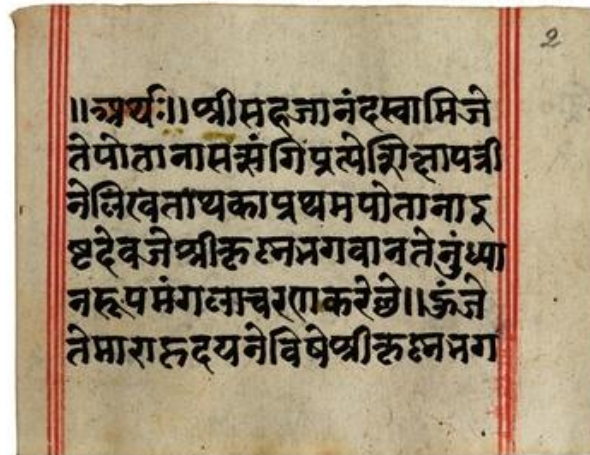 २
॥अर्थः॥श्रीसहजानंदस्वामिजे
तेपोतानासत्संगिप्रत्येशिक्षापत्री
नेलिखताथकाप्रथमपोतानाइ
ष्टदेवजेश्रीकृष्नभगवानतेनुंध्या
नरूपमंगलाचरणकरेछे॥ऊंजे
तेमाराहृदयनेविषेश्रीकृष्नभग